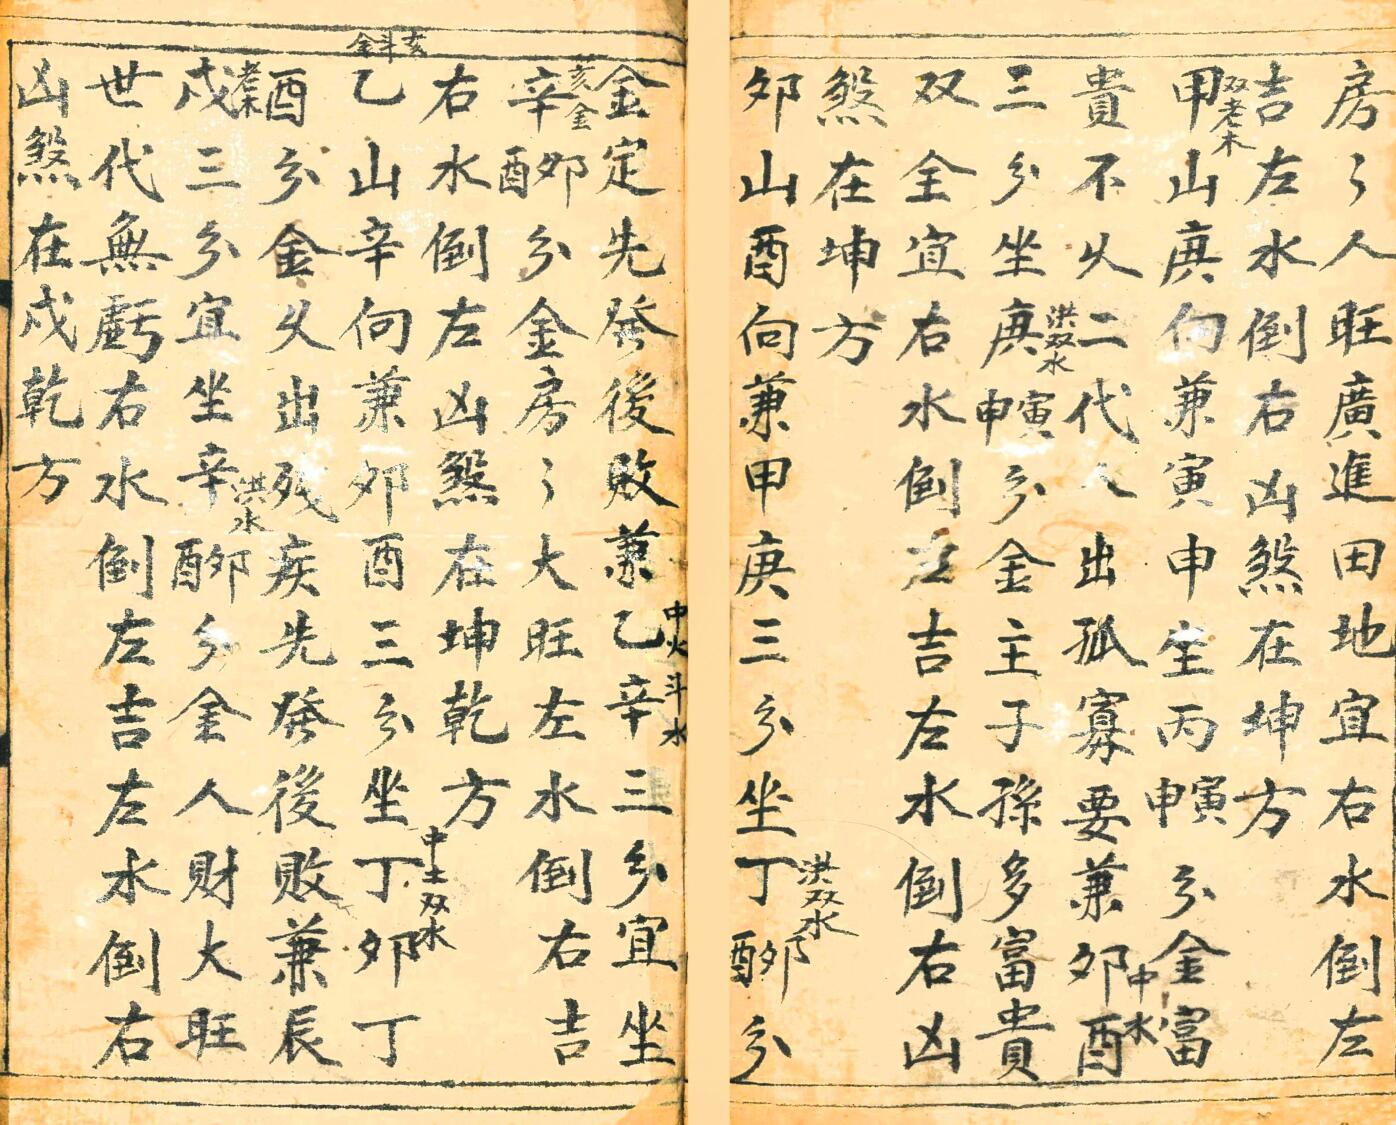 房々人旺廣進田地宜右水倒左
吉左水倒右凶煞在坤方
双老木
甲山庚向兼寅申坐丙寅申分金富
中水
貴不久二代人出孤寡要兼夘酉
洪双水
三分坐庚寅申分金主子孫多富貴
双全宜右水倒左吉左水倒右凶
煞在坤方
洪双水
夘山酉向兼甲庚三分坐丁夘酉分
中火斗水
金定先發後敗兼乙辛三分宜坐
亥金
辛夘酉分金房々大旺左水倒右吉
右水倒左凶煞在坤乾方
亥斗金
中土双水
乙山辛向兼夘酉三分坐丁夘丁
酉分金久出残疾先發後敗兼辰
老木
洪水
戌三分宜坐辛夘酉分金人財大旺
世代無虧右水倒左吉左水倒右
凶煞在戌乾方